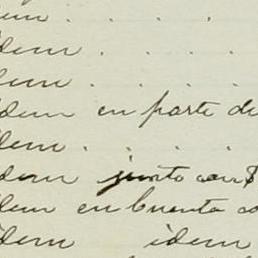 idem . . .
idem . . . .
idem . . . .
idem en parte de
idem . . . .
idem junto con $
idem en Cuenta co
idem idem